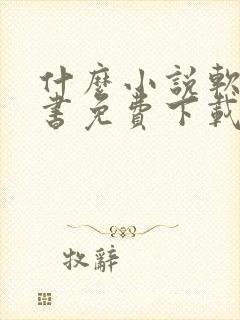 什麼小說軟
書免費下載
牧辭